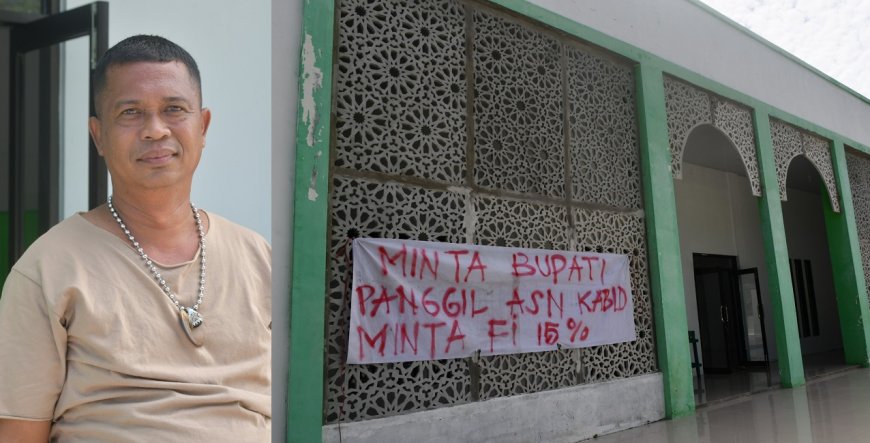 MINTA BUPATI
PANGGIL ASN KABID
MINTA Fi 15%